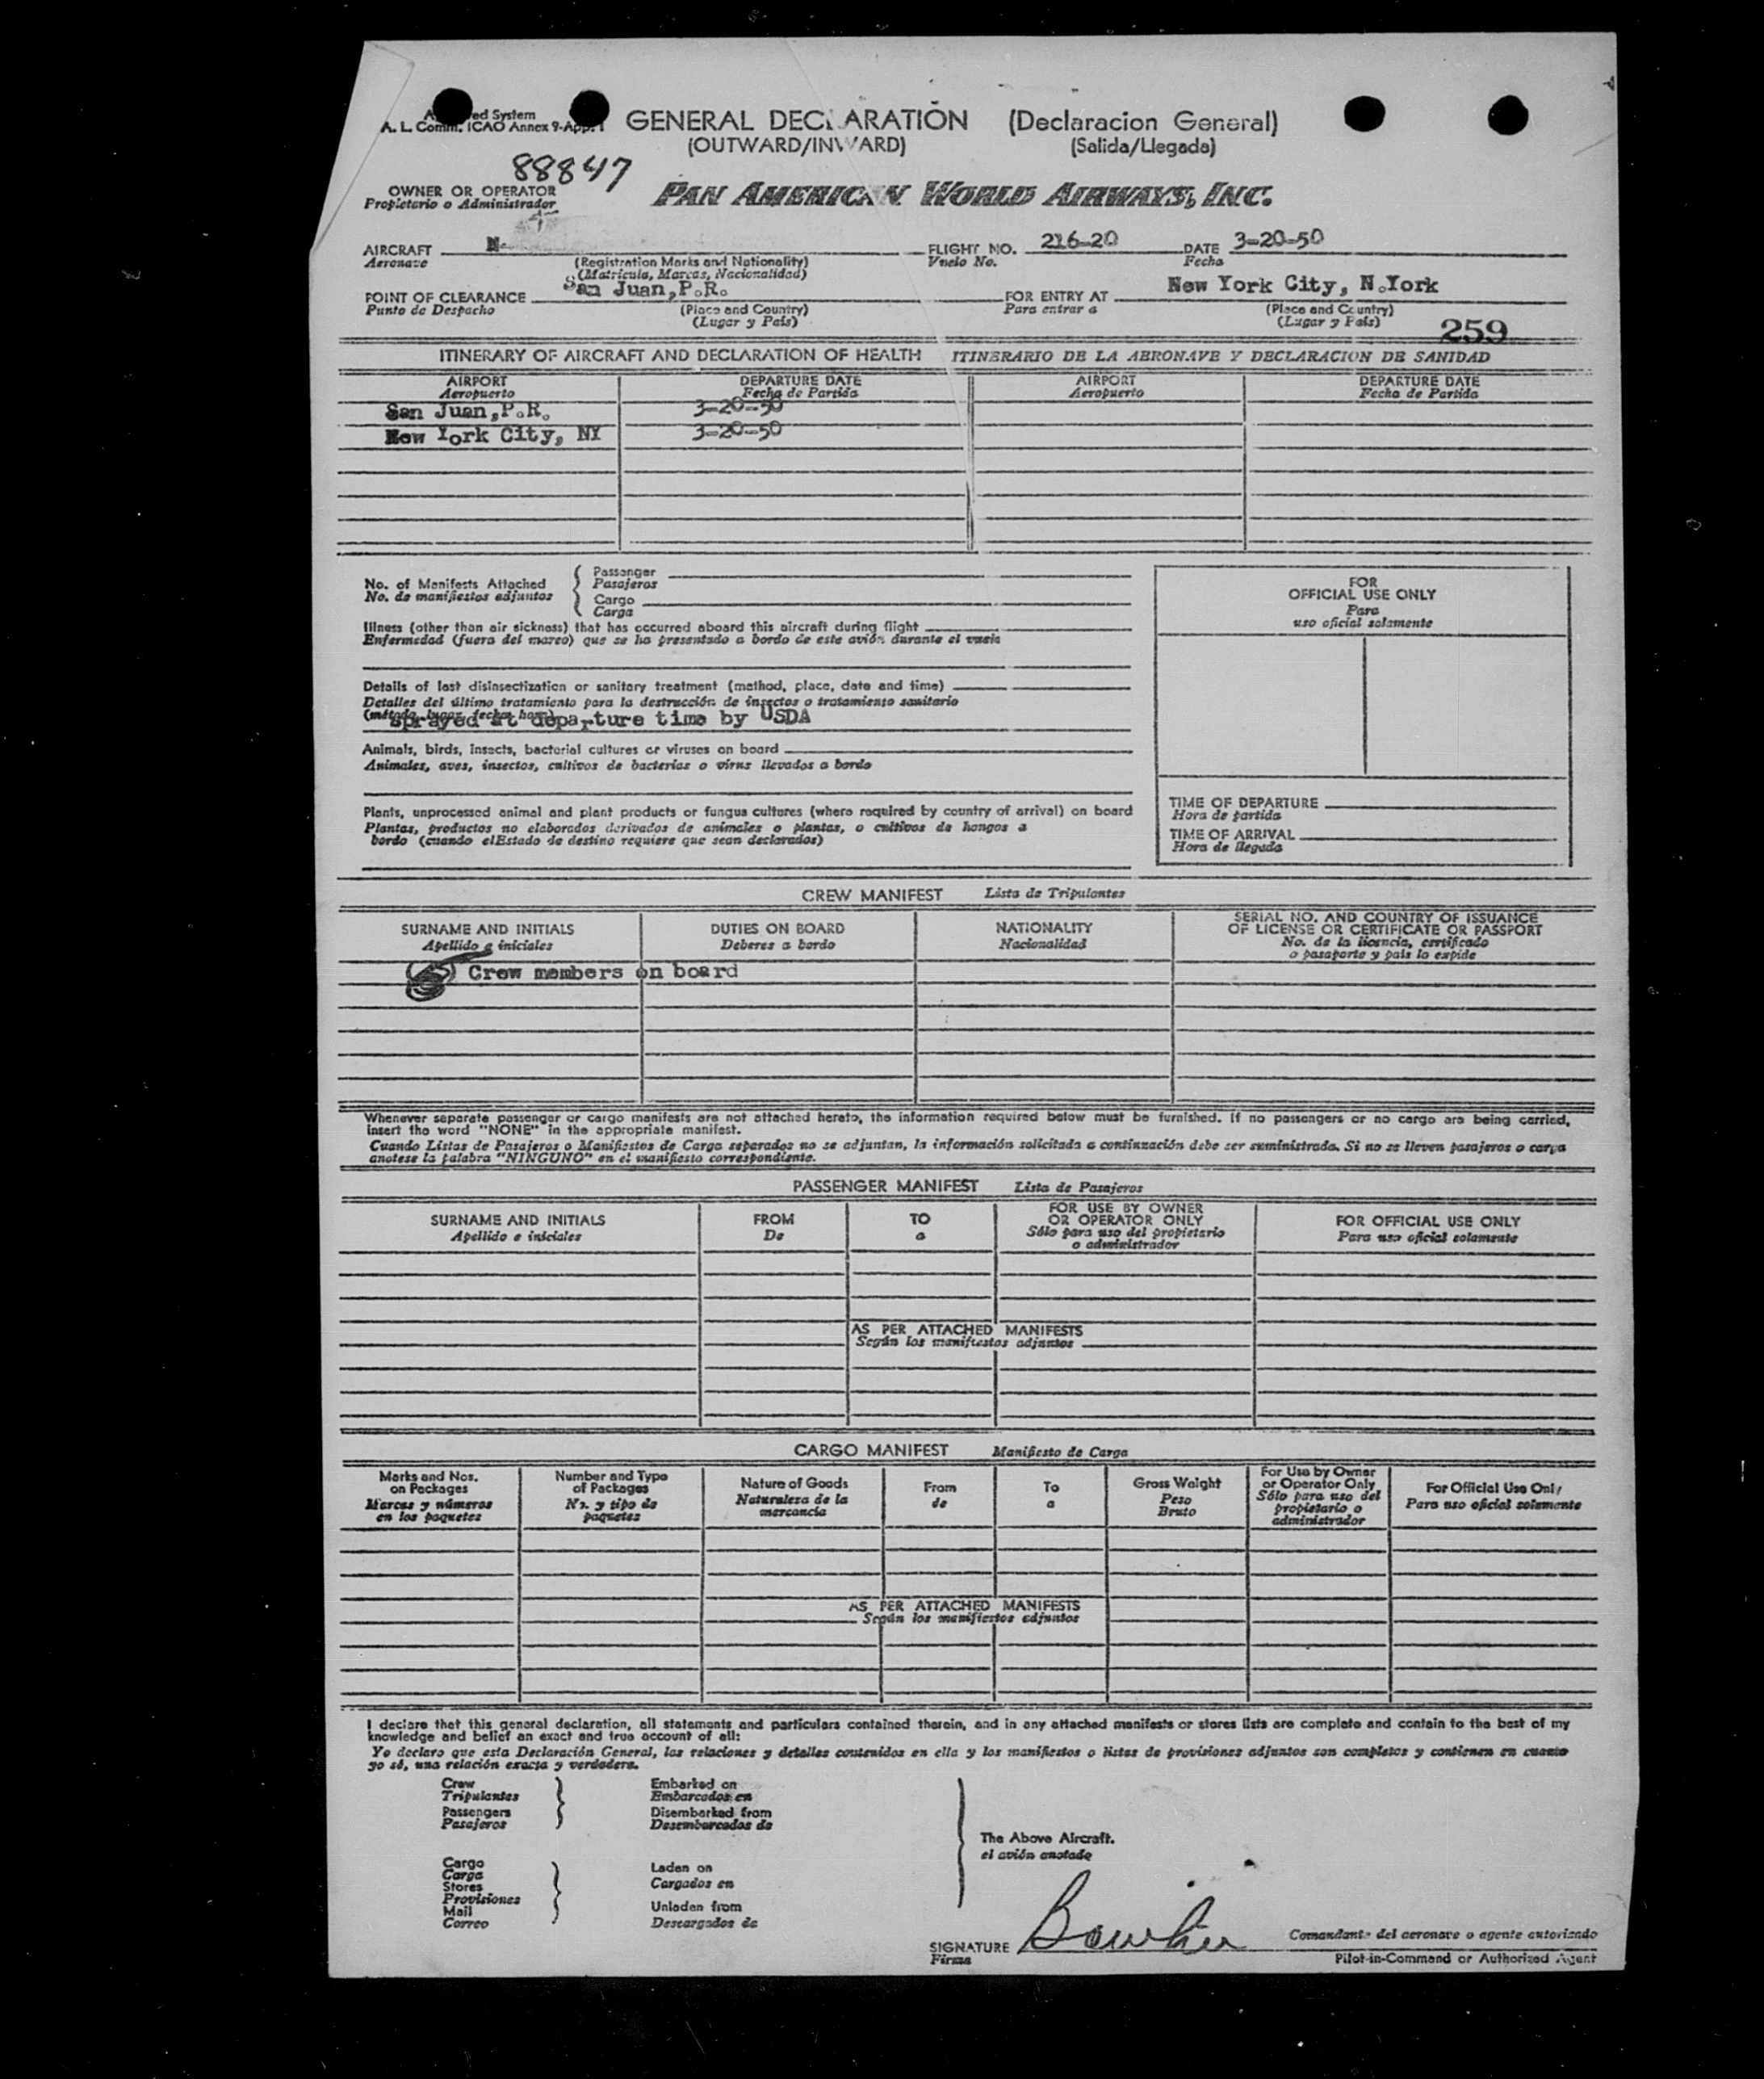 GENERAL DECLARATION (Declaracion General)
ed System
A. L. Comm. ICAO Annex 9-App. 1
(OUTWARD/INWARD) (Salida/Llegada)
88847
OWNER OR OPERATOR
Propietario o Administrador
PAN AMERICAN WORLD AIRWAYS, INC.
AIRCRAFT N- FLIGHT NO. 216-20 DATE 3-20-50
Aeronave (Registration Marks and Nationality) Vuelo No. Fecha
(Matricula, Marcas, Nacionalidad)
POINT OF CLEARANCE San Juan,P.R. FOR ENTRY AT New York City, N.York
Punto de Despacho (Place and Country) Para entrar a (Place and Country)
(Lugar y País) (Lugar y País) 259
ITINERARY OF AIRCRAFT AND DECLARATION OF HEALTH ITINERARIO DE LA AERONAVE Y DECLARACION DE SANIDAD
AIRPORT DEPARTURE DATE AIRPORT DEPARTURE DATE
Aeropuerto Fecha de Partida Aeropuerto Fecha de Partida
San Juan,P.R. 3-20-50
New York City, NY 3-20-50
No. of Manifests Attached Passenger
No. de manifiestos adjuntos Pasajeros
Cargo
Carga
FOR
OFFICIAL USE ONLY
Para
uso oficial solamente
Illness (other than air sickness) that has occurred aboard this aircraft during flight
Enfermedad (fuera del mareo) que se ha presentado a bordo de este avión durante el vuelo
Details of last disinsectization or sanitary treatment (method, place, date and time)
Detalles del último tratamiento para la destrucción de insectos o tratamiento sanitario
(método, lugar, fecha, hora)
Sprayed at departure time by USDA
Animals, birds, insects, bacterial cultures or viruses on board
Animales, aves, insectos, cultivos de bacterias o virus llevados a bordo
Plants, unprocessed animal and plant products or fungus cultures (where required by country of arrival) on board
Plantas, productos no elaborados derivados de animales o plantas, o cultivos de hongos a
bordo (cuando elEstado de destino requiere que sean declarados)
TIME OF DEPARTURE
Hora de partida
TIME OF ARRIVAL
Hora de llegada
CREW MANIFEST Lista de Tripulantes
SURNAME AND INITIALS DUTIES ON BOARD NATIONALITY SERIAL NO. AND COUNTRY OF ISSUANCE
Apellido e iniciales Deberes a bordo Nacionalidad OF LICENSE OR CERTIFICATE OR PASSPORT
No. de la licencia, certificado
o pasaporte y país lo expide
Crew members on board
Whenever separate passenger or cargo manifests are not attached hereto, the information required below must be furnished. If no passengers or no cargo are being carried,
insert the word "NONE" in the appropriate manifest.
Cuando Listas de Pasajeros o Manifiestos de Carga separados no se adjuntan, la información solicitada a continuación debe ser suministrada. Si no se lleven pasajeros o carga
anotese la palabra "NINGUNO" en el manifiesto correspondiente.
PASSENGER MANIFEST Lista de Pasajeros
SURNAME AND INITIALS FROM TO FOR USE BY OWNER FOR OFFICIAL USE ONLY
Apellido e iniciales De a OR OPERATOR ONLY Para uso oficial solamente
Sólo para uso del propietario
o administrador
AS PER ATTACHED MANIFESTS
Según los manifiestos adjuntos
CARGO MANIFEST Manifiesto de Carga
Marks and Nos. Number and Type Nature of Goods From To Gross Weight For Use by Owner For Official Use Only
on Packages of Packages Naturaleza de la de a Peso or Operator Only Para uso oficial solamente
Marcas y números No. y tipo de mercancía Bruto Sólo para uso del
en los paquetes paquetes propietario o
administrador
AS PER ATTACHED MANIFESTS
Según los manifiestos adjuntos
I declare that this general declaration, all statements and particulars contained therein, and in any attached manifests or stores lists are complete and contain to the best of my
knowledge and belief an exact and true account of all:
Yo declaro que esta Declaración General, las relaciones y detalles contenidos en ella y los manifiestos o listas de provisiones adjuntos son completos y contienen en cuanto
yo sé, una relación exacta y verdadera.
Crew Embarked on
Tripulantes Embarcados en
Passengers Disembarked from
Pasajeros Desembarcados de
The Above Aircraft.
el avión anotado
Cargo Laden on
Carga Cargados en
Stores
Provisiones
Mail Unladen from
Correo Descargados de
SIGNATURE
Firma
Comandante del aeronave o agente autorizado
Pilot-in-Command or Authorized Agent